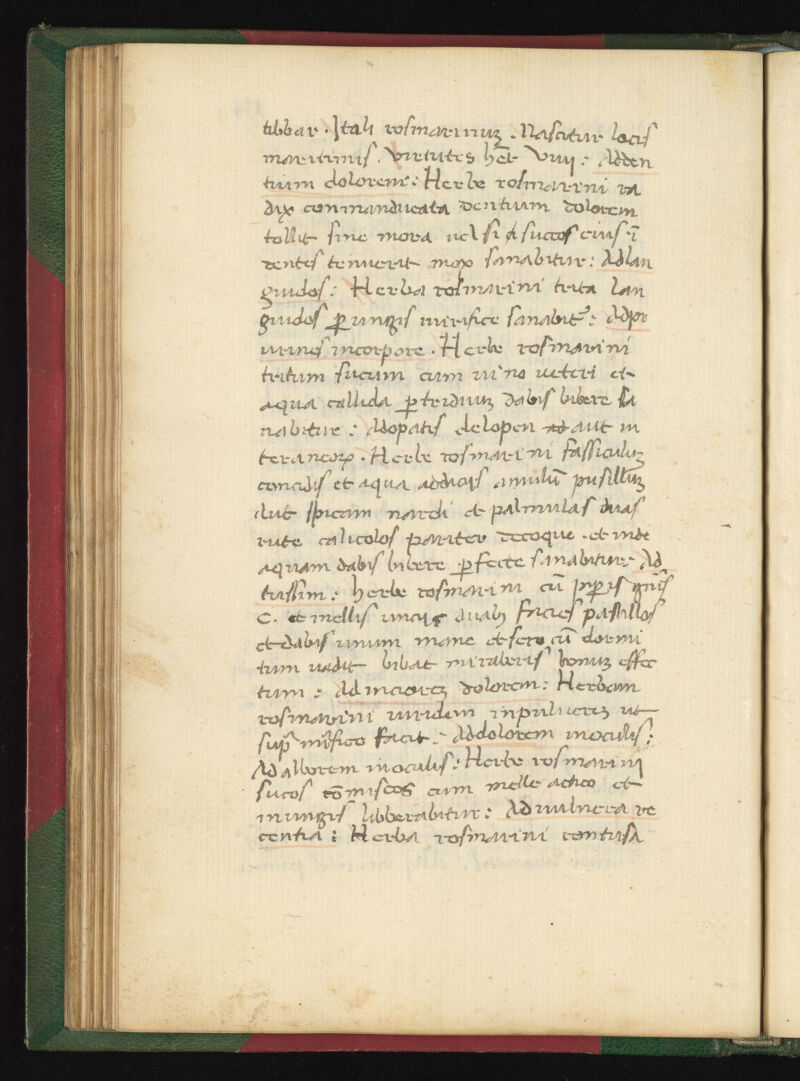 tibbar. Itali rosmarinuꝫ. Nascitur locis
maritimis. Virtutes hēt VIIII: Ad den
tium dolorem: Herbe rosmarini ra
dix conmanducata dentium dolorem
tollit sine mora uel si sucos eius ī
dentes tenuerit mox sanabitur: Ad lan
guidos: Herba rosmarini trita lan
guidos ꝑungis mirifice sanabit᷒: Ad po
urines in corpore. Herbe rosmarini
tritum sucum cum uino ueteri et
aqua callida ꝑ triduuꝫ dabis bibere sa
nabitur: Ad opatis delopen aut in
teraneoꝝ. Herbe rosmarini fassiculuꝫ
concidis et aqua addicis pusilluꝫ
aut spicam nardi et palmulas duas
rute calicolos pariter decoque. et inde
aquam dabis bibere ꝑfecte sanabitur: Ad
tussim: herbe rosmarini cū
C. et mellis unciis duabꝫ facies pastillos
et dabis unum mane et sero cū dormi
tum uadit bibat miraberis bonuꝫ effec
tum: Ad dolorem: Herbam
rosmarini uiridem in puluereꝫ ut
sup̄ mirifico facit: Ad dolorem in oculis:
Ad alborem in oculis: Herbe rosmarini
sucos cōmisces cum melle actico et
inungis libberabitur: Ad uulnera re
centia: Herba rosmarini contusa